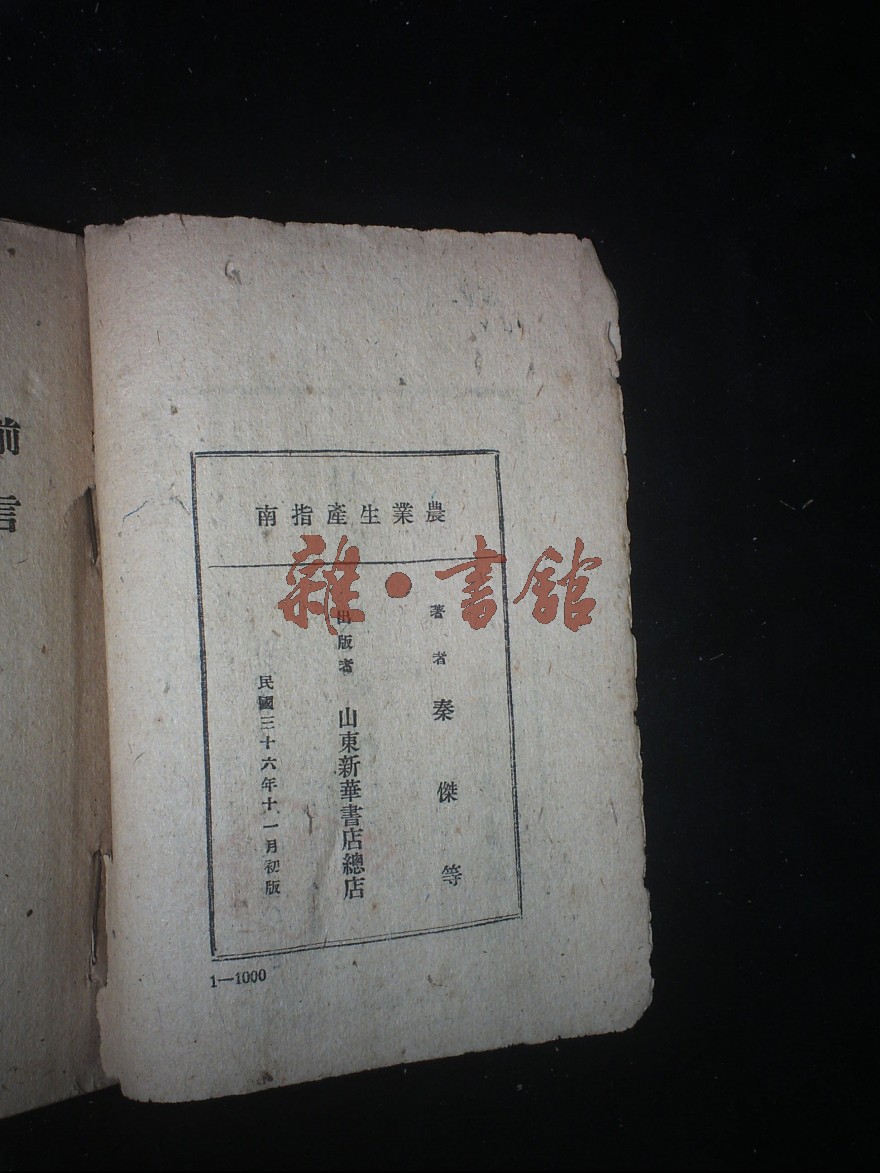 前言
農業生產指南
雜·書館
著者 秦傑等
出版者 山東新華書店總店
民國三十六年十一月初版
1—1000